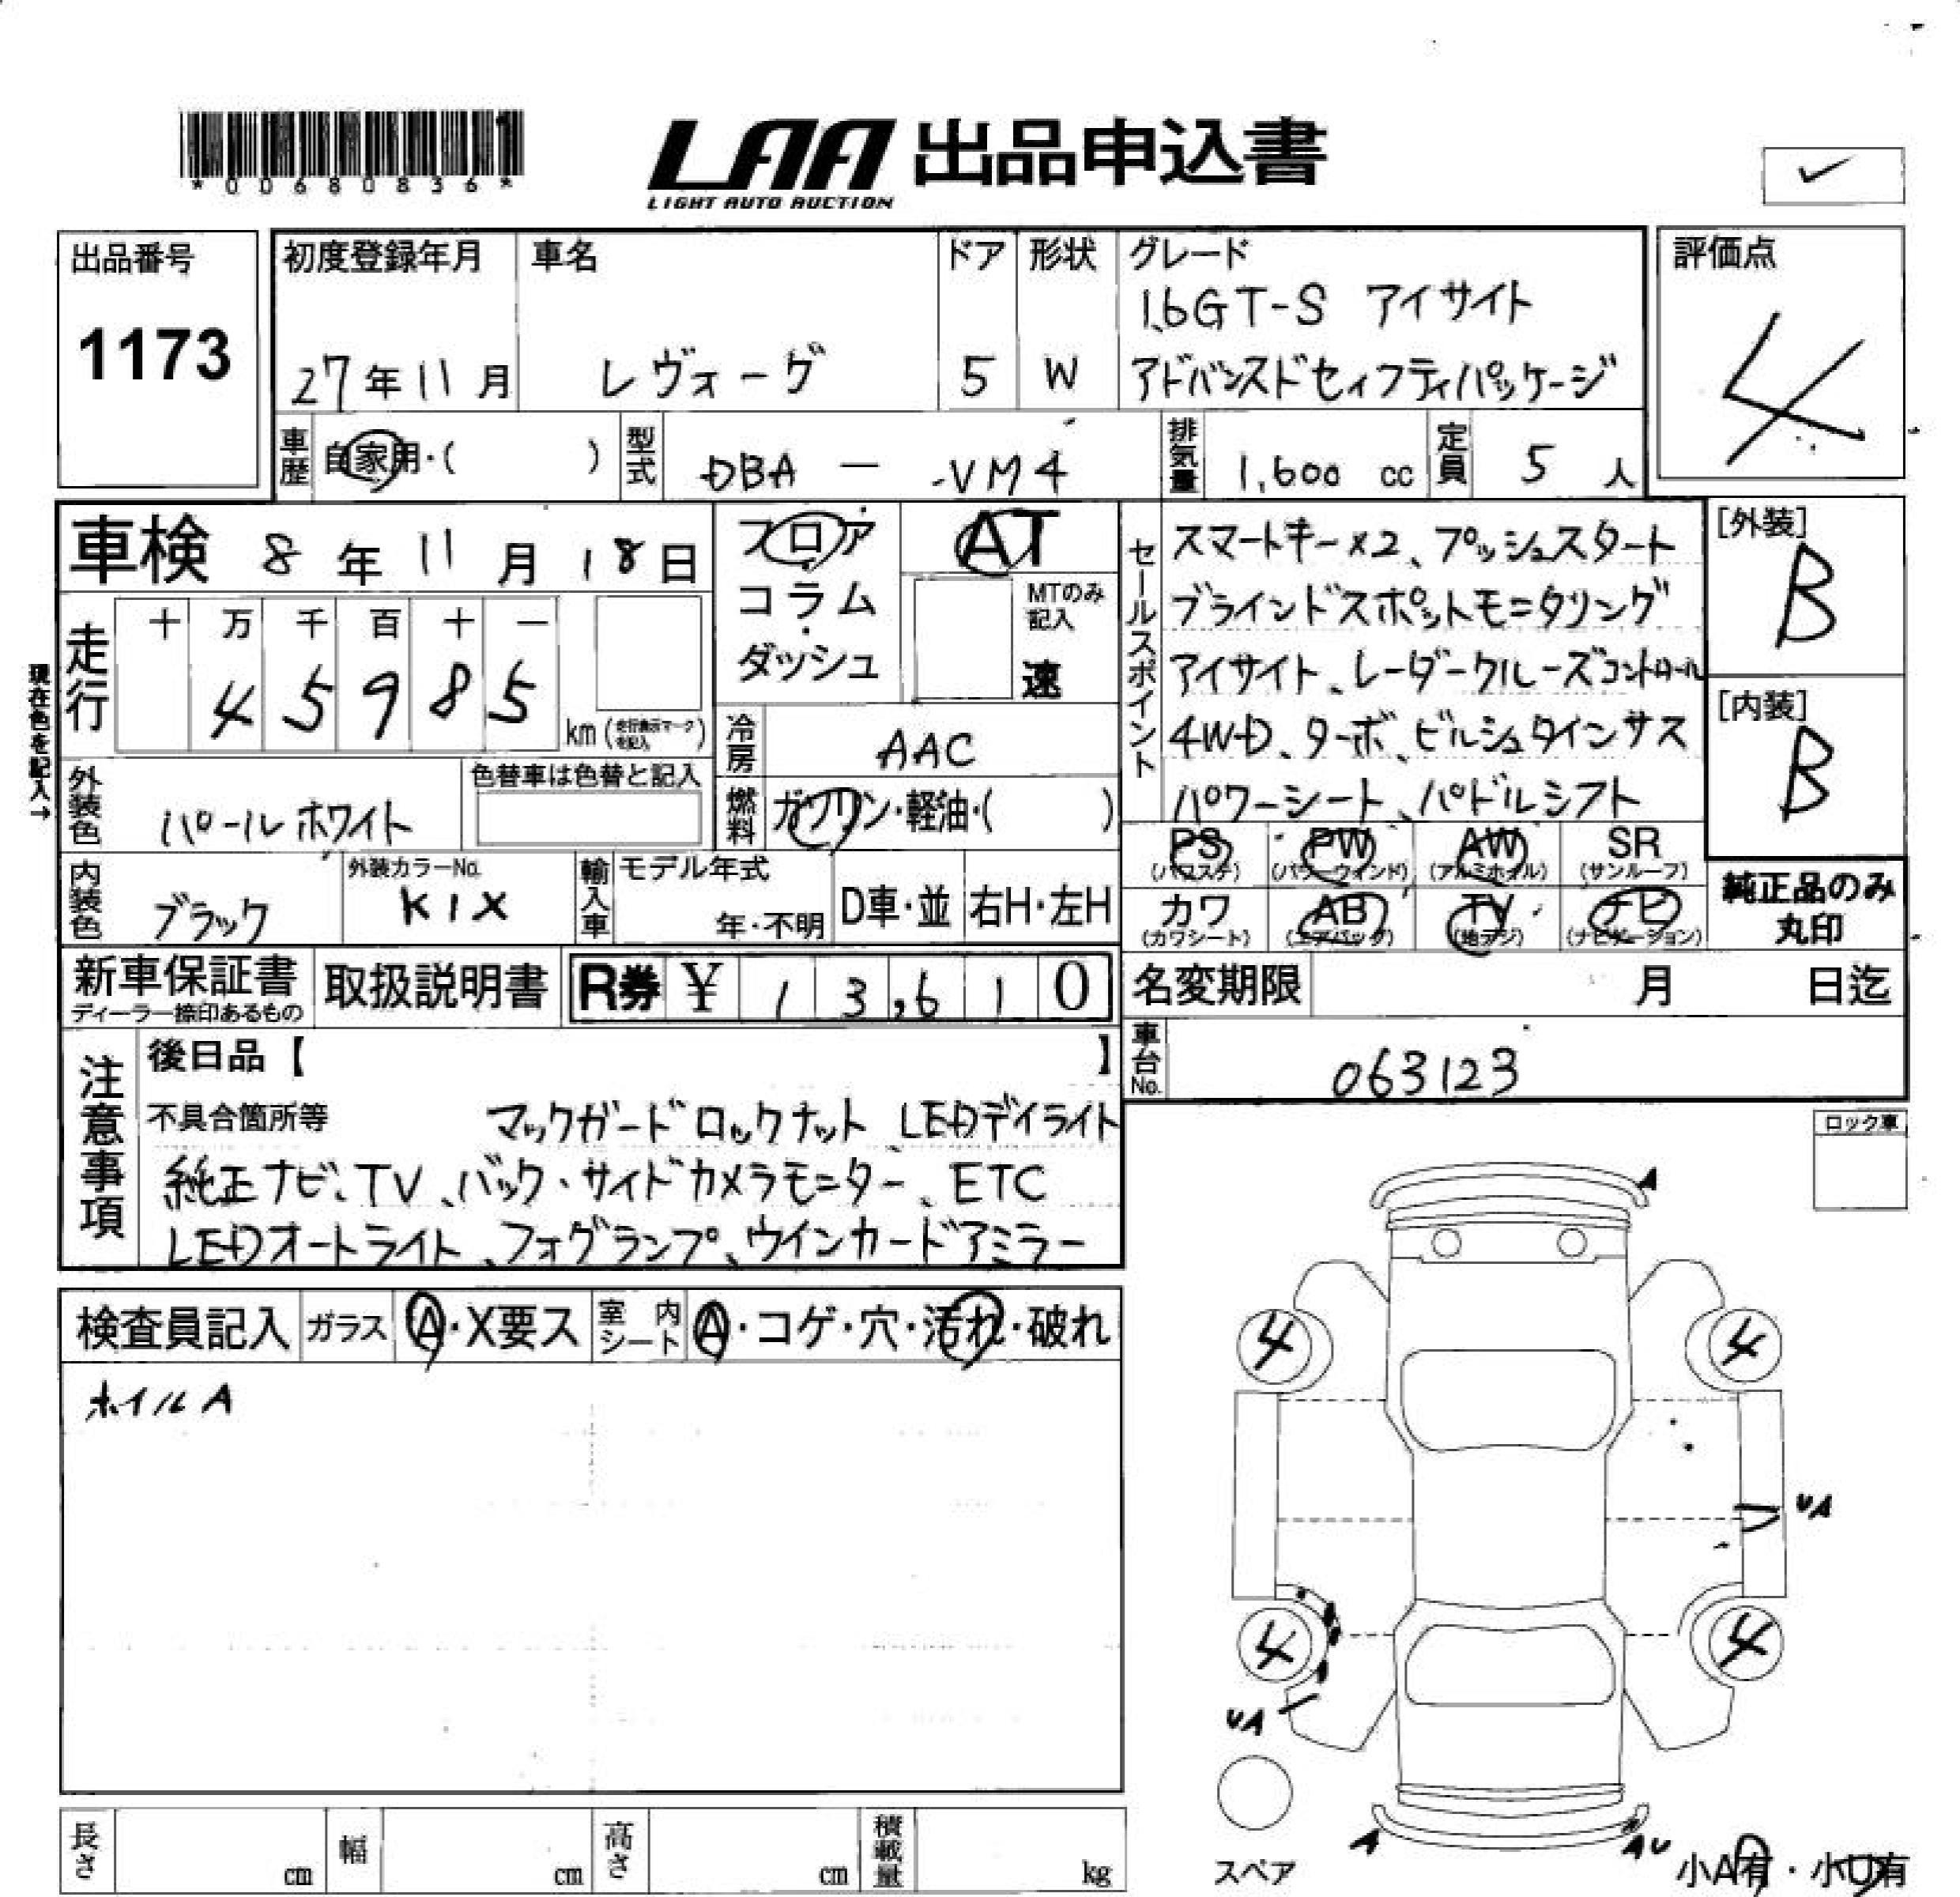 *00680836*
LAA 出品申込書
LIGHT AUTO AUCTION
出品番号
1173
初度登録年月
27年11月
車名
レヴォーグ
ドア
5
形状
W
グレード
1.6GT-S アイサイト
アドバンスドセイフティパッケージ
評価点
4
車歴 自家用・( )
型式 DBA - VM4
排気量 1,600 cc
定員 5 人
車検 8年11月18日
フロア
コラム
ダッシュ
AT
MTのみ
記入
速
走行
十 万 千 百 十 一
4 5 9 8 5
km (走行表示マークを記入)
現在色を記入→
冷房 AAC
外装色 パールホワイト
色替車は色替と記入
燃料 ガソリン・軽油・( )
内装色 ブラック
外装カラーNo.
K1X
輸入車
モデル年式
年・不明
D車・並
右H・左H
セールスポイント
スマートキー×2、プッシュスタート
ブラインドスポットモニタリング
アイサイト、レーダークルーズコントロール
4WD、ターボ、ビルシュタインサス
パワーシート、パドルシフト
[外装]
B
[内装]
B
PS
(パワステ)
PW
(パワーウインド)
AW
(アルミホイル)
SR
(サンルーフ)
カワ
(カワシート)
AB
(エアバック)
TV
(地デジ)
ナビ
(ナビゲーション)
純正品のみ
丸印
新車保証書
ディーラー捺印あるもの
取扱説明書
R券 ¥ 13,610
名変期限 月 日迄
車台No. 063123
注意事項
後日品【 】
不具合箇所等 マックガードロックナット LEDデイライト
純正ナビ、TV、バック・サイドカメラモニター、ETC
LEDオートライト、フォグランプ、ウインカードアミラー
ロック車
検査員記入
ガラス A・X要ス
室内シート A・コゲ・穴・汚れ・破れ
ホイルA
A
4 4
UA
4 4
UA
スペア
A
AU
小A有・小U有
長さ cm
幅 cm
高さ cm
積載量 kg